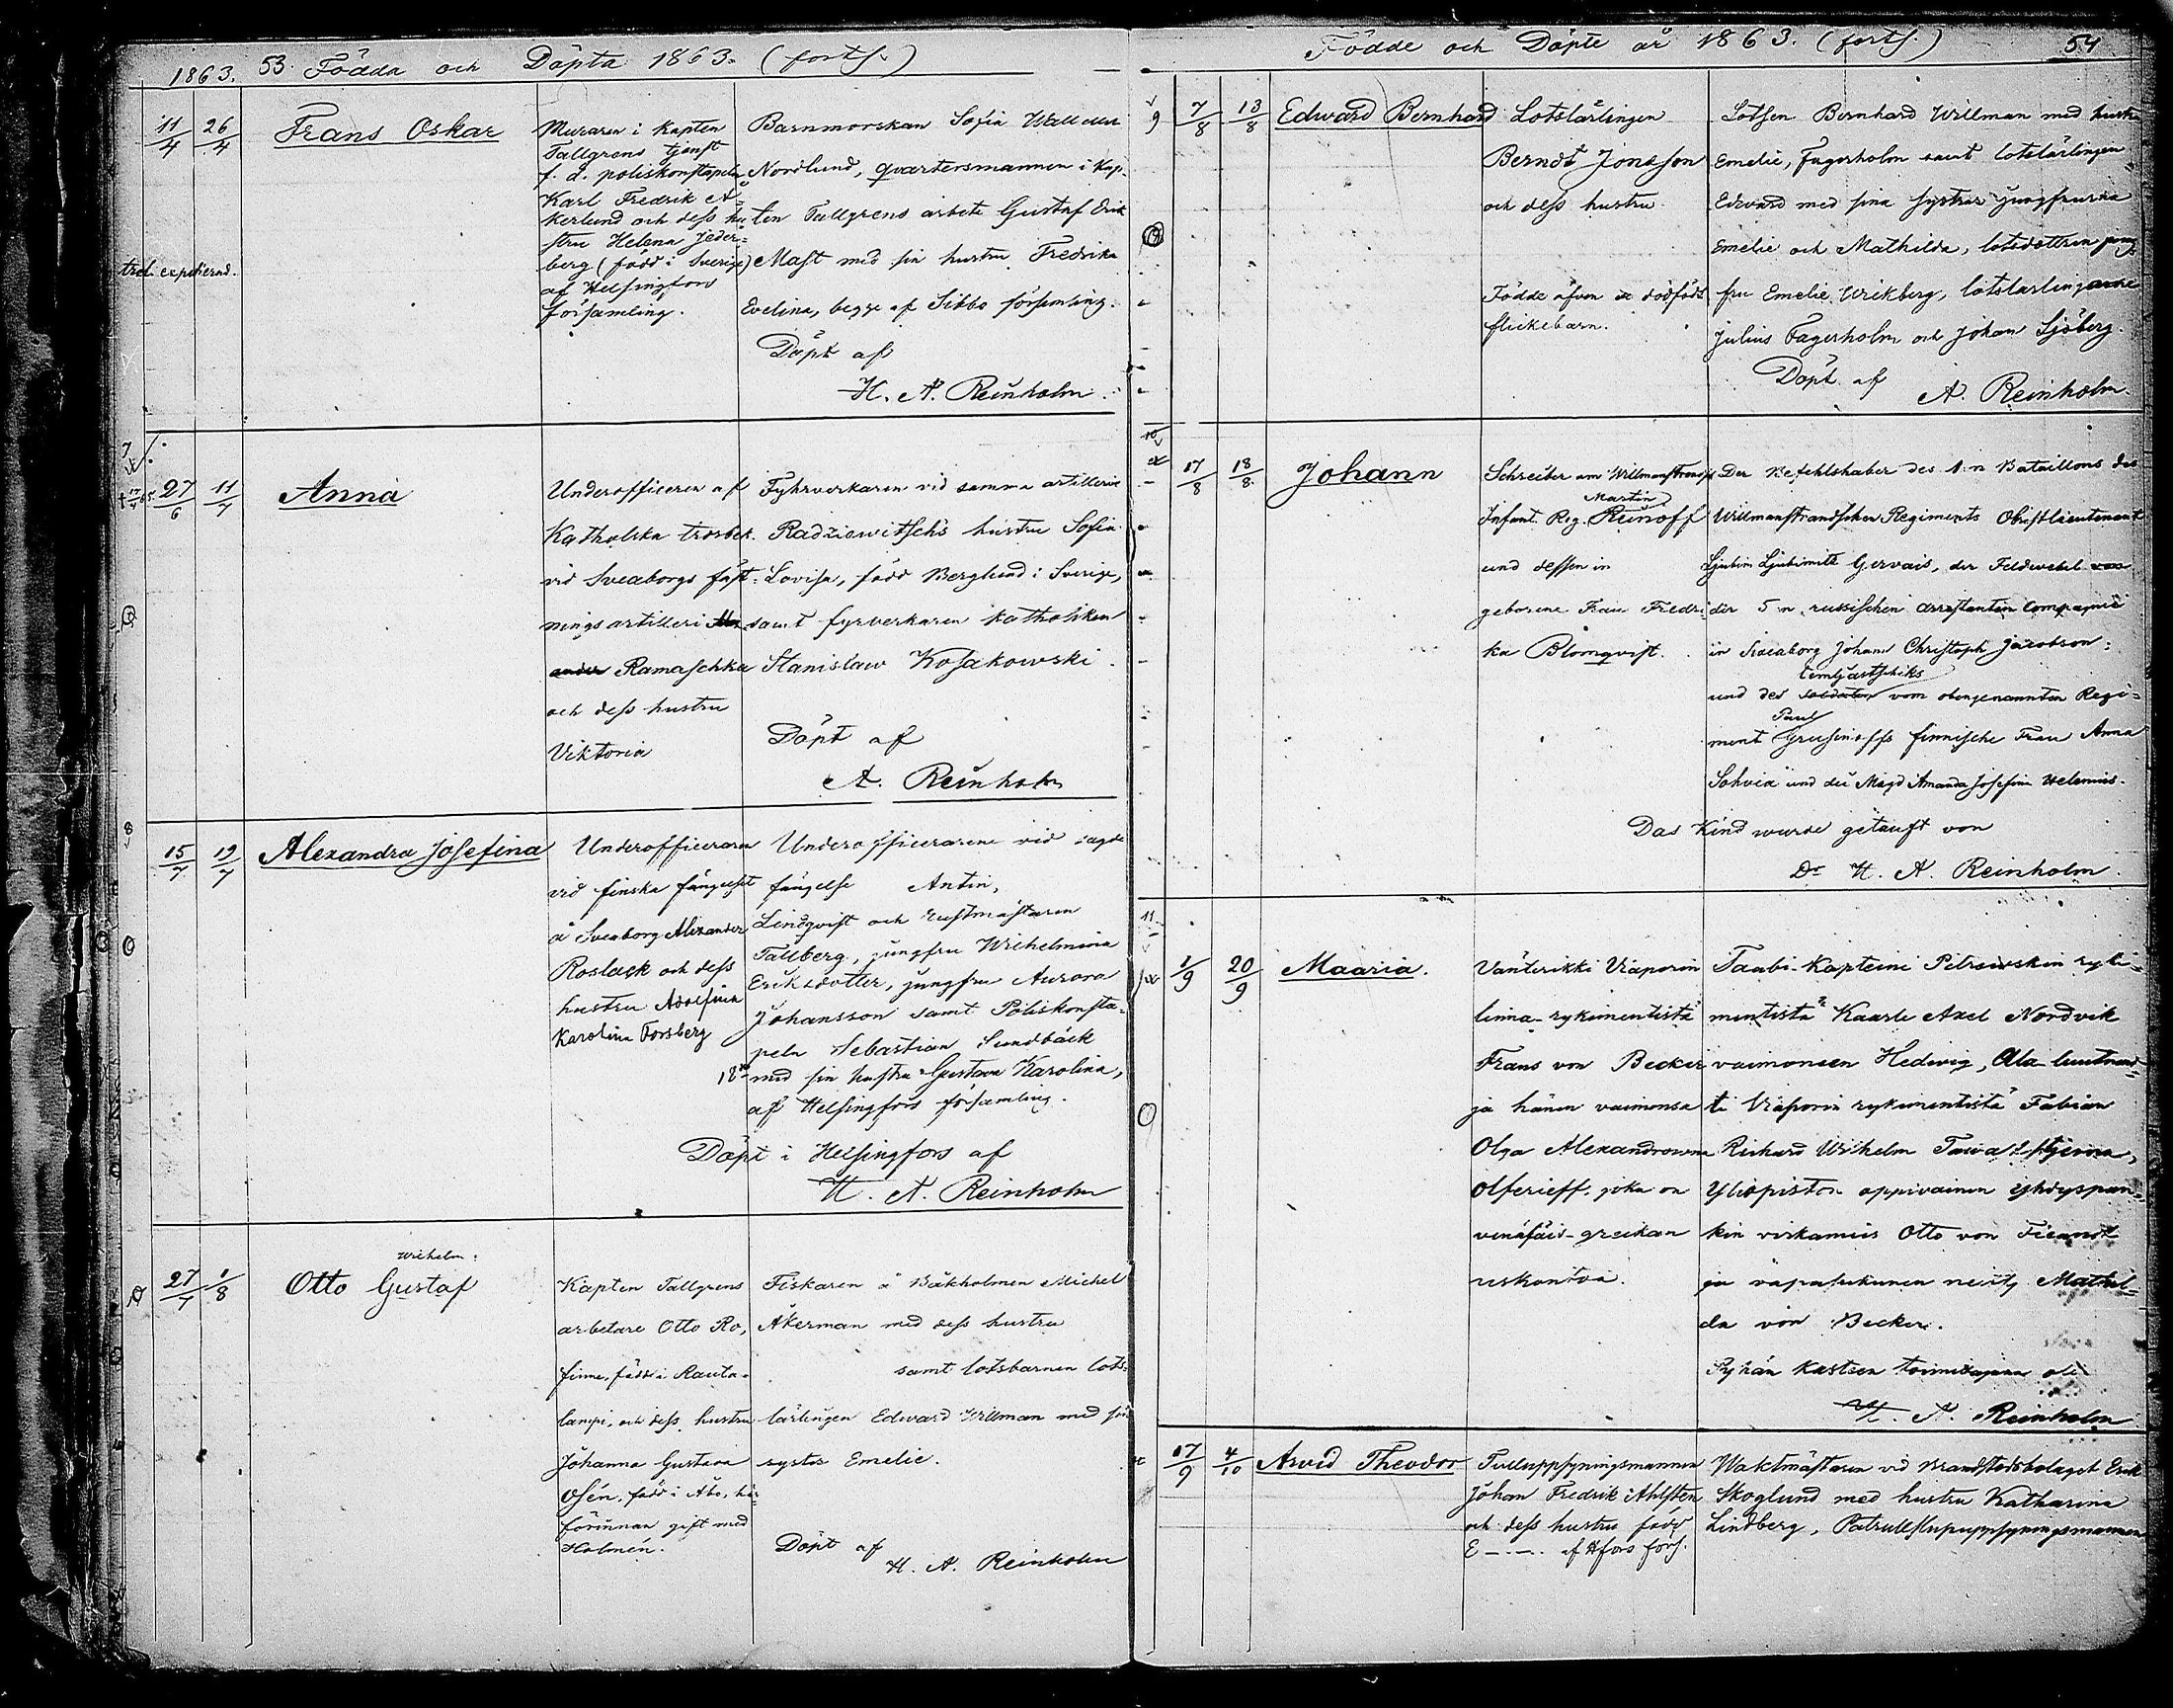 1863. 53 Födda och Döpta 1863. (forts.)
11/4 26/4 Frans Oskar
Muraren i Kapten
Tallgrens tjenst
f. d. poliskonstapeln
Karl Fredrik A-
kerlund och dess hu
stru Helena Jeder-
berg (född i Sverige)
af Helsingfors
församling.
Barnmorskan Sofia
Nordlund, qvartersmannen i Kap-
ten Tallgrens arbete Gustaf Erik
Mast med sin hustru Fredrika
Evelina, begge af Sibbo församling.
Döpt af
H. A. Reinholm.
7
27/6 11/7 Anna
Underofficeren af
Katholska trosbek.
vid Sveaborgs fäst-
nings artilleri
Ramaschka
och dess hustru
Viktoria
Fyhrverkaren vid samma artilleri
Radziewitsch's hustru Sofia
Lovisa, född Berglund i Sverige,
samt fyrverkaren Katholiken
Stanislaw Kosakowski.
Döpt af
A. Reinholm
8
15/7 19/7 Alexandra Josefina
Underofficeraren
vid finska fängelset
å Sveaborg Alexander
Roslack och dess
hustru Adolfina
Karolina Forsberg
Underofficerarene vid sagde
fängelse Antin,
Lindqvist och rustmästaren
Tallberg, jungfru Wilhelmina
Eriksdotter, jungfru Aurora
Johansson samt Poliskonsta-
peln Sebastian Sundbäck
med sin hustru Gustava Karolina,
af Helsingfors församling.
Döpt i Helsingfors af
H. A. Reinholm
Wilhelm.
27/7 1/8 Otto Gustaf
Kapten Tallgrens
arbetare Otto Ro,
finne, född i Rauta-
lampi, och dess hustru
Johanna Gustava
Osén, född i Åbo, här
förinnan gift med
Holmén.
Fiskaren å Båkholmen Michel
Åkerman med dess hustru
samt lotsbarnen lots-
lärlingen Edward Willman med sin
syster Emelie.
Döpt af
H. A. Reinholm
Födde och Döpte år 1863. (forts.) 54
9 7/8 13/8 Edward Bernhard
Lotslärlingen
Berndt Jonsson
och dess hustru
Födde äfven dödfödt
flickebarn.
Lotsen Bernhard Willman med hustru
Emelie, Fagerholm samt lotslärlingen
Edward med sina systrar jungfrurna
Emelie och Mathilda, lotsdottren jung-
fru Emelie Wikberg, lotslärlingarne
Julius Fagerholm och Johan Sjöberg.
Döpt af
A. Reinholm.
10
17/8 18/8 Johann
Schreiber am Willmanstrandsk
Martin
Infant. Reg. Reinoff
und dessen in
geborene Frau Fredri-
ka Blomqvist.
Der Befehlshaber des 1:n Bataillons des
Willmanstrandschen Regiments Obristlieutenant
Ljubim Gervais, der Feldwebel
der 5:n russischen Arrestanten Compagnie
in Sveaborg Johann Christoph Jacobson:
und des vom obengenannten Regi-
Paul
ment Grusinoffs finnische Frau Anna
Sohvia und die Magd Amanda Josefina Helenius.
Das Kind wurde getauft von
Dr H. A. Reinholm.
11
1/9 20/9 Maaria.
Vänterikki Viaporin
linna-rykimentistä
Frans von Becker
ja hänen vaimonsa
Olga Alexandrowna
Olferieff, joka on
venäjäis-greikan
uskontoa.
Taabi-Kapteini Petrowskin ryki-
mentistä Kaarle Axel Nordvik
vaimoneen Hedwig, Ala-luutnan-
ti Viaporin rykimentistä Fabian
Richard Wilhelm Tawaststjerna,
Yliopiston oppivainen yhdyspan-
kin virkamies Otto von Fieandt
ja vapasukunen neity Mathil-
da von Becker.
Pyhän kasteen toimittajana oli
H. A. Reinholm
17/9 4/10 Arvid Theodor
Tulluppsyningsmannen
Johan Fredrik Ahlsten
och dess hustru född
E -.-.- af Hfors förs.
Waktmästaren vid Brandstodsbolaget Erik
Skoglund med hustru Katharina
Lindberg, Patrullslupuppsyningsmannen